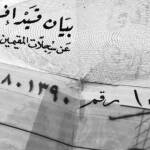 بيان قيد افر
عن سجلات المقيمين
١٥ رقم ٨٠١٣٩٠